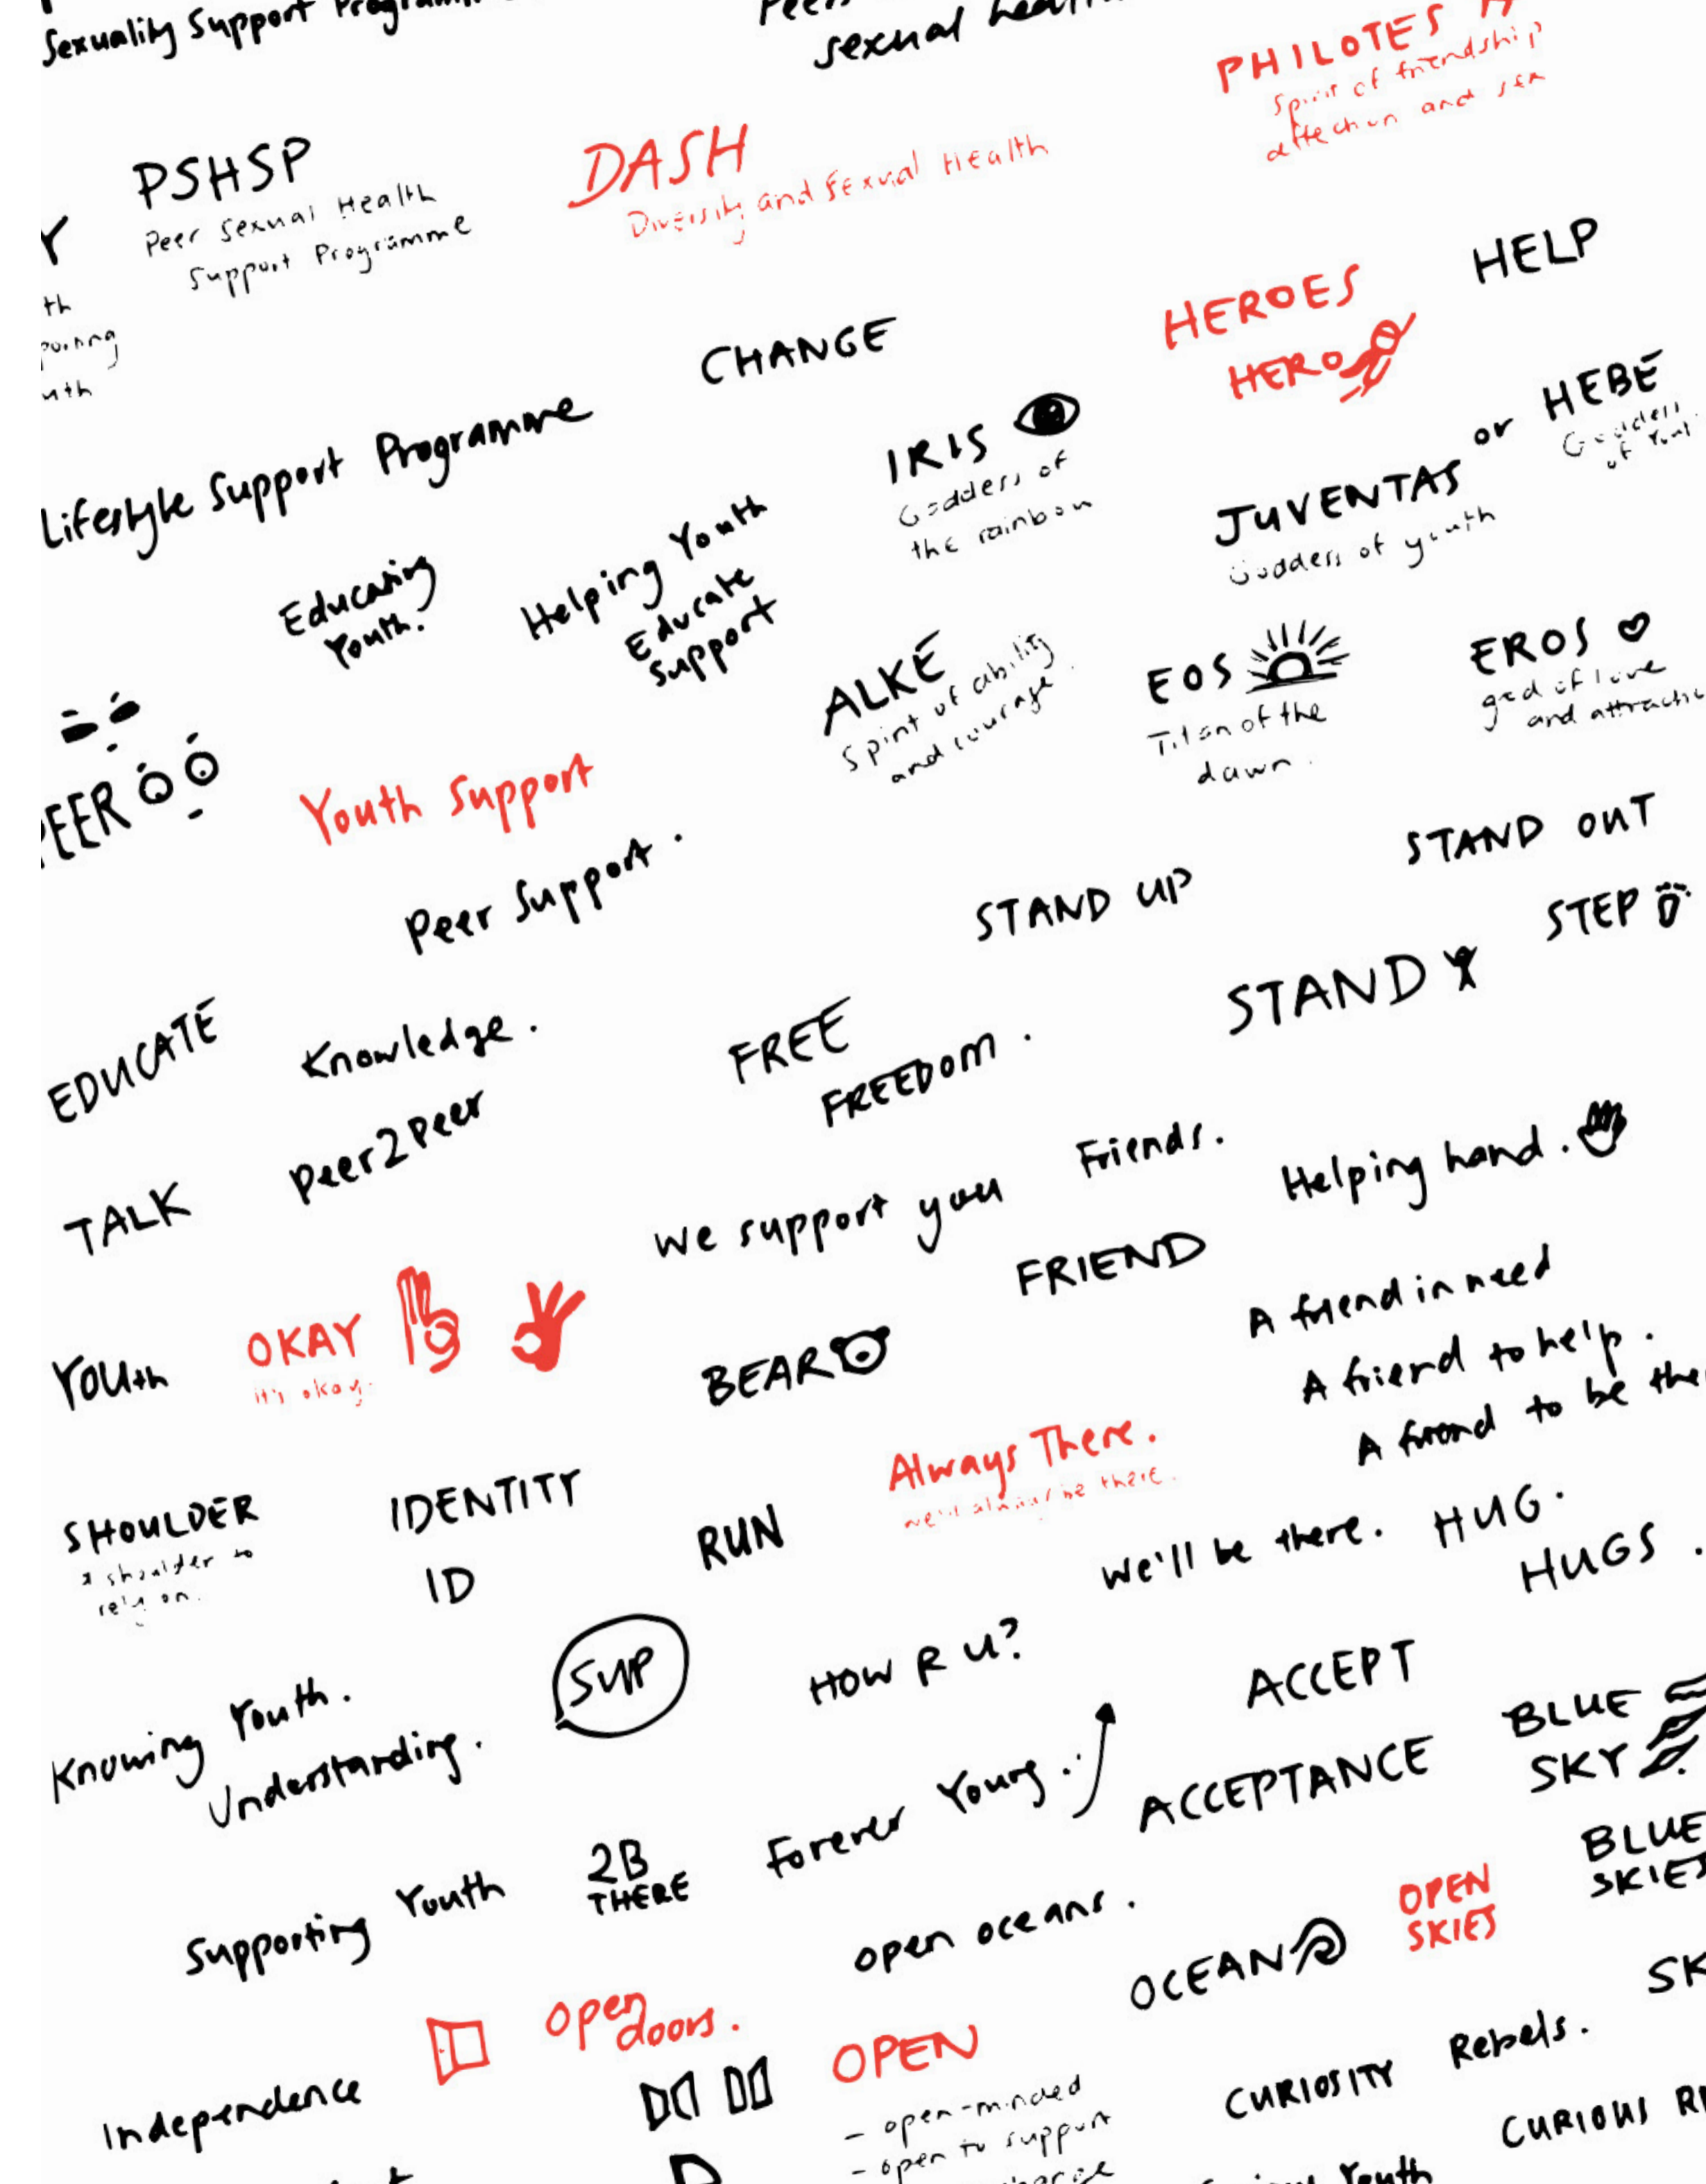 Sexuality Support
sexual
PHILOTES
Spirit of friendship
affection and sex
PSHSP
Peer Sexual Health
Support Programme
DASH
Diversity and Sexual Health
Y
th
uth
HELP
HEROES
HERO
CHANGE
Lifestyle Support Programme
IRIS
Goddess of
the rainbow
JUVENTAS
Goddess of youth
or HEBE
Goddess
of
Educating
Youth.
Helping Youth
Educate
Support
ALKE
Spirit of ability
and courage.
EOS
Titan of the
dawn.
EROS
god of love
and
PEER
Youth Support
Peer Support.
STAND UP
STAND OUT
STEP
STAND
EDUCATE
Knowledge.
FREE
FREEDOM.
TALK
Peer2Peer
We support you
Friends.
Helping hand.
FRIEND
YOUth
OKAY
it's okay.
BEAR
A friend in need
A friend to help.
A friend to be
Always There.
we'll always be there.
SHOULDER
a shoulder to
rely on.
IDENTITY
ID
RUN
We'll be there.
HUG.
HUGS.
Knowing Youth.
Understanding.
SUP
HOW R U?
ACCEPT
ACCEPTANCE
BLUE
SKY
BLUE
SKIES
Forever Young.
Supporting Youth
2B
THERE
open oceans.
OCEAN
OPEN
SKIES
SK
Independence
Open
doors.
OPEN
- open-minded
- open to support
CURIOSITY
Rebels.
CURIOUS
Youth